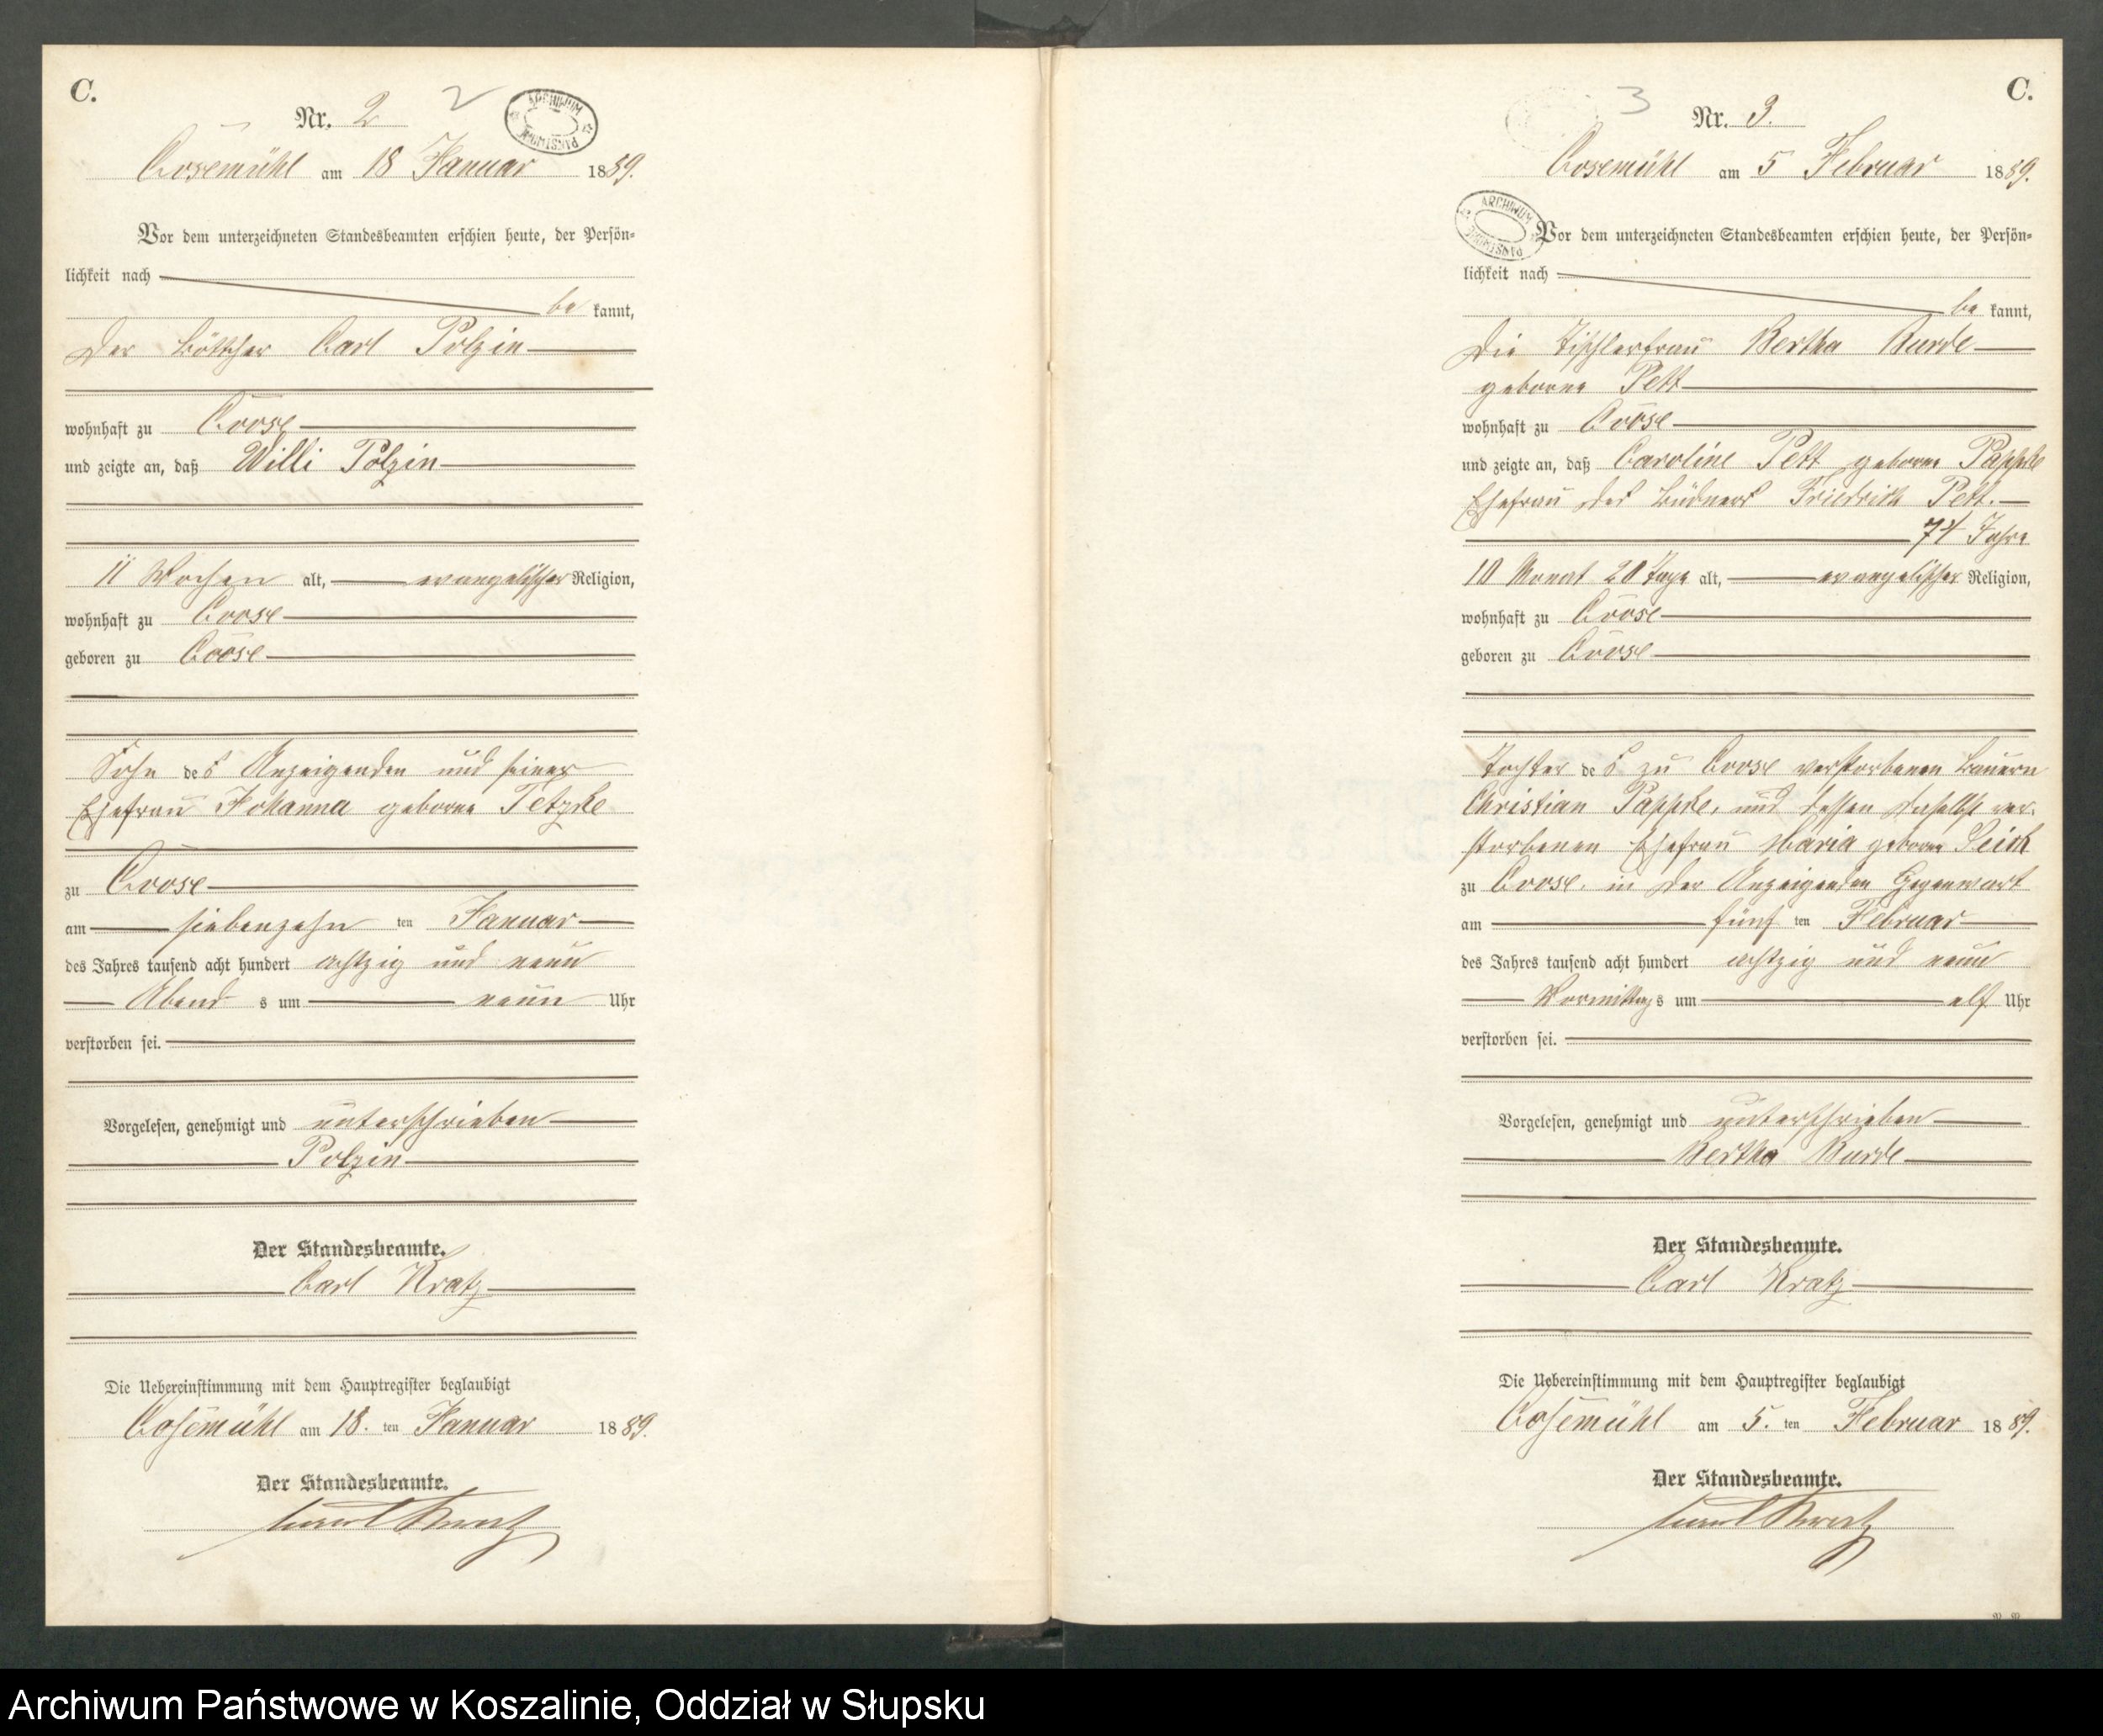 C.
Nr. 2
2
ARCHIWUM PAŃSTWOWE
Cosemühl am 18 Januar 1889.
Vor dem unterzeichneten Standesbeamten erschien heute, der Persön-
lichkeit nach
be kannt,
Der Böttcher Carl Polzin
wohnhaft zu Coose
und zeigte an, daß Willi Polzin
11 Wochen alt, evangelischer Religion,
wohnhaft zu Coose
geboren zu Coose
Sohn des Anzeigenden und seiner
Ehefrau Johanna geborne Tetzke
zu Coose
am siebenzehn ten Januar
des Jahres tausend acht hundert achtzig und neun
Abend s um neun Uhr
verstorben sei.
Vorgelesen, genehmigt und unterschrieben
Polzin
Der Standesbeamte.
Carl Kratz
Die Uebereinstimmung mit dem Hauptregister beglaubigt
Cosemühl am 18. ten Januar 1889.
Der Standesbeamte.
Carl Kratz
C.
3
Nr. 3.
Cosemühl am 5 Februar 1889.
ARCHIWUM PAŃSTWOWE
Vor dem unterzeichneten Standesbeamten erschien heute, der Persön-
lichkeit nach
be kannt,
Die Tischlerfrau Bertha Burde
geborne Pett
wohnhaft zu Coose
und zeigte an, daß Caroline Pett geborne Pappke
Ehefrau des Büdners Friedrich Pett.
74 Jahre
10 Monat 20 Tage alt, evangelischer Religion,
wohnhaft zu Coose
geboren zu Coose
Tochter des zu Coose verstorbenen Bauern
Christian Pappke, und dessen daselbst ver-
storbenen Ehefrau Maria geborne
zu Coose, in der Anzeigenden Gegenwart
am fünf ten Februar
des Jahres tausend acht hundert achtzig und neun
Vormittags um elf Uhr
verstorben sei.
Vorgelesen, genehmigt und unterschrieben
Bertha Burde
Der Standesbeamte.
Carl Kratz
Die Uebereinstimmung mit dem Hauptregister beglaubigt
Cosemühl am 5. ten Februar 1889.
Der Standesbeamte.
Carl Kratz
Archiwum Państwowe w Koszalinie, Oddział w Słupsku